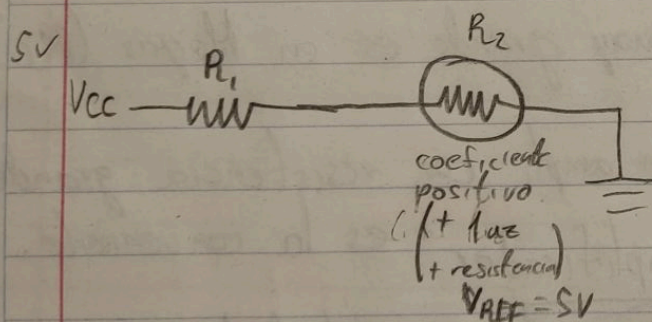 5V
R₁
R₂
Vcc
coeficiente
positivo
(+ luz
+ resistencia)
VREF = 5V